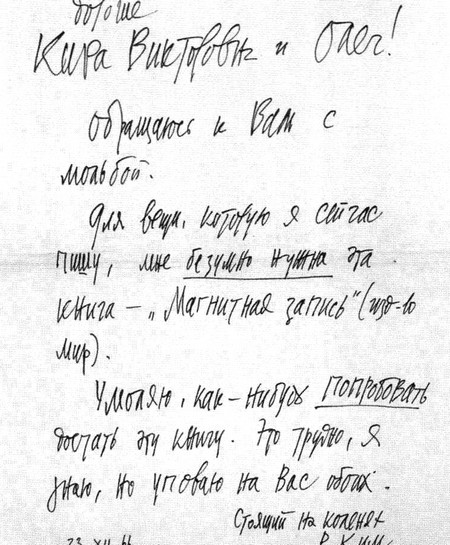 дорогие
Кира Викторовна и Олег!
обращаюсь к Вам с
мольбой.
Для вещи, которую я сейчас
пишу, мне безумно нужна эта
книга – „Магнитная запись" (изд-во
Мир).
Умоляю, как-нибудь попробовать
достать эту книгу. Это трудно, я
знаю, но уповаю на Вас обоих.
Стоящий на коленях
Р. Ким
23 XII 66